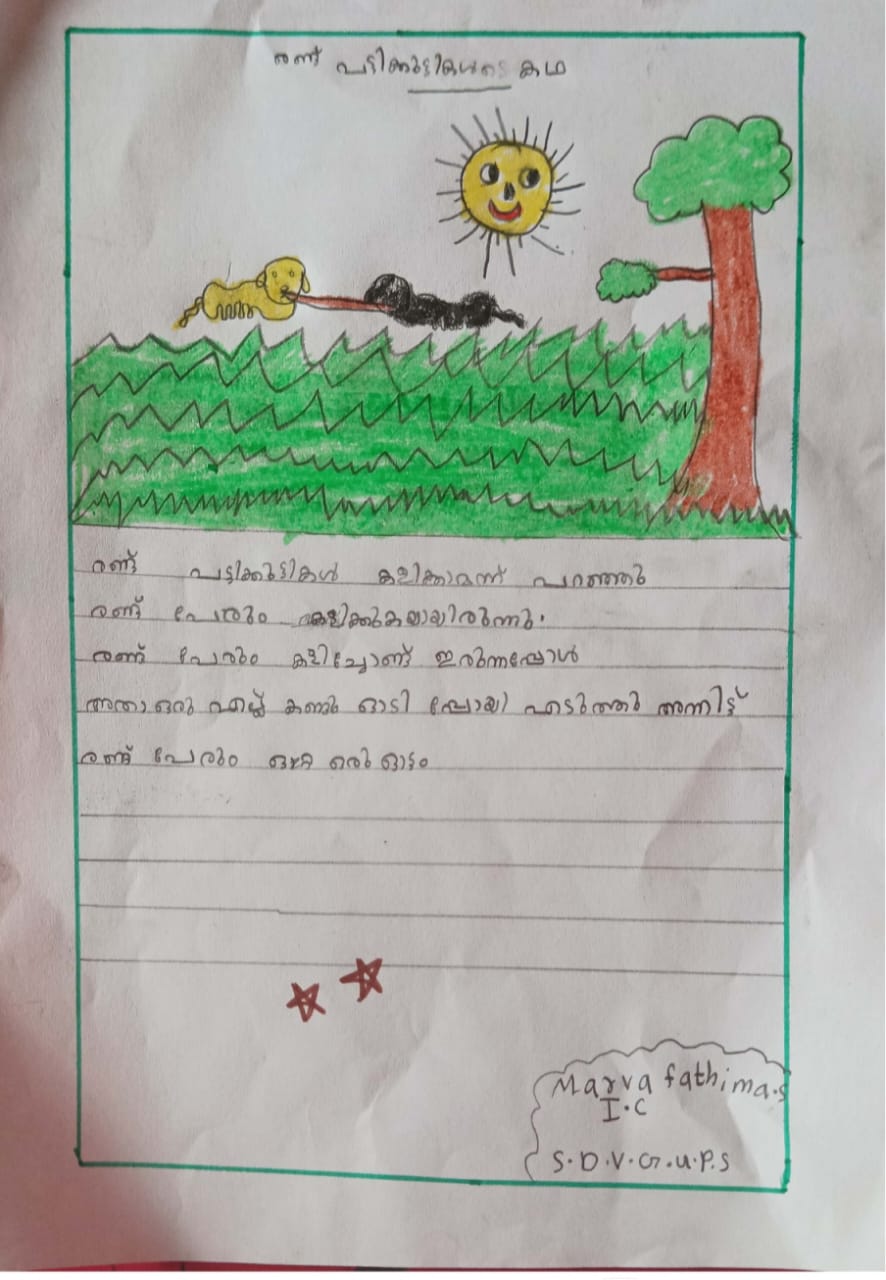 രണ്ട് പട്ടിക്കുട്ടികളുടെ കഥ
രണ്ട് പട്ടിക്കുട്ടികൾ കളിക്കാമെന്ന് പറഞ്ഞു
രണ്ട് പേരും കളിക്കുകയായിരുന്നു.
രണ്ട് പേരും കളിച്ചോണ്ട് ഇരുന്നപ്പോൾ
അതാ ഒരു എല്ല് കണ്ടു ഓടി പ്പോയി എടുത്തു അന്നിട്ട്
രണ്ട് പേരും ഒരു ഓട്ടം
Marva fathima.s
I.C
S.D.V.G.U.P.S